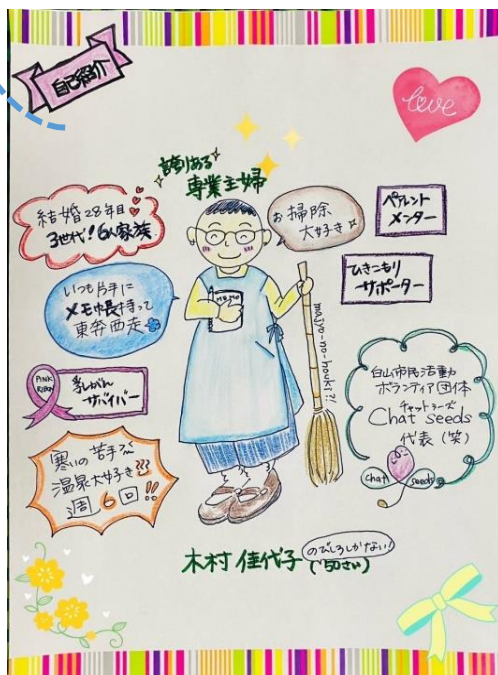 自己紹介
love
誇りある
専業主婦
結婚28年目
3世代!6人家族
お掃除
大好き
ペアレント
メンター
ひきこもり
サポーター
いつも片手に
メモ帳持って
東奔西走
memo
majyo-no-houki?!
PINK
RIBBON
乳がん
サバイバー
白山市民活動
ボランティア団体
チャットシーズ
Chat seeds
代表(笑)
chat
seeds
寒いの苦手
温泉大好き
週6回!!
木村 佳代子
のびしろしかない!
('50さい)